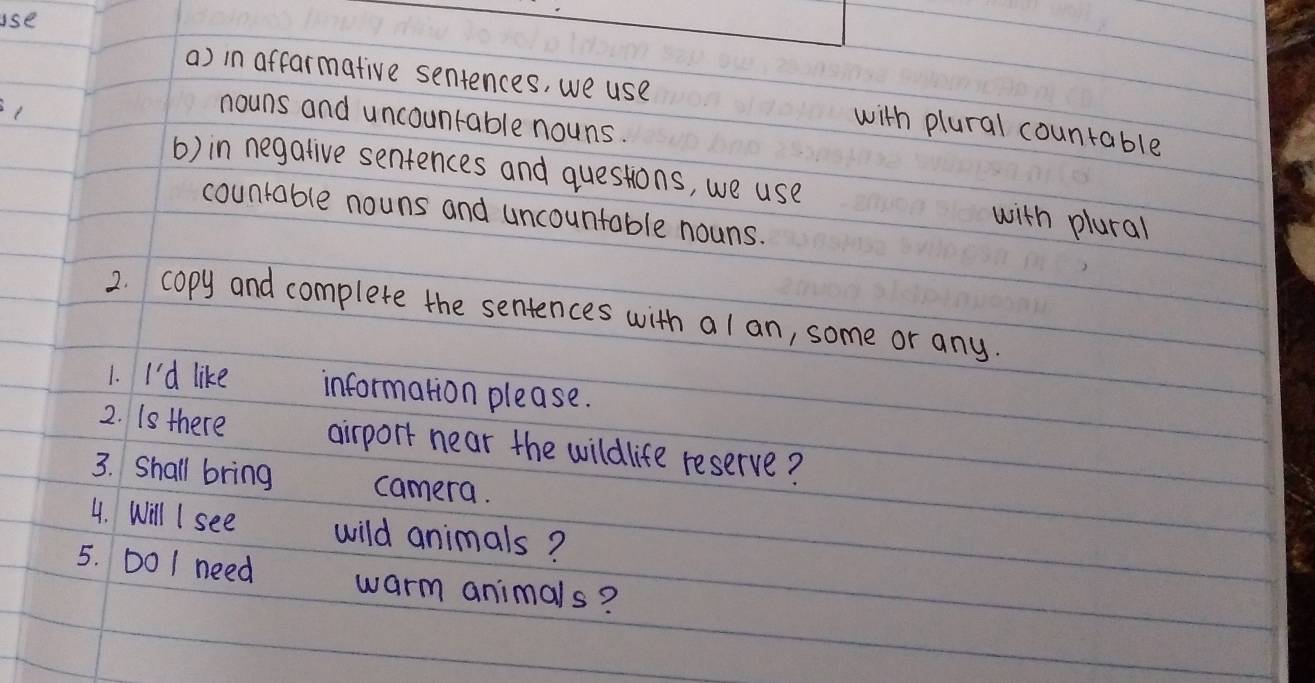 use
a) in affarmative sentences, we use with plural countable
nouns and uncountable nouns.
b) in negative sentences and questions, we use with plural
countable nouns and uncountable nouns.
2. copy and complete the sentences with a/an, some or any.
1. I'd like information please.
2. Is there airport near the wildlife reserve?
3. Shall bring camera.
4. Will I see wild animals?
5. Do I need warm animals?